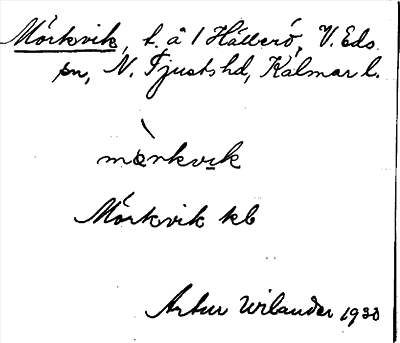 Mörkvik, t. å 1 Hällerö, V. Eds
sn, N. Tjusts hd, Kalmar l.
mørkvik
Mörkvik kb
Artur Wilander 1930